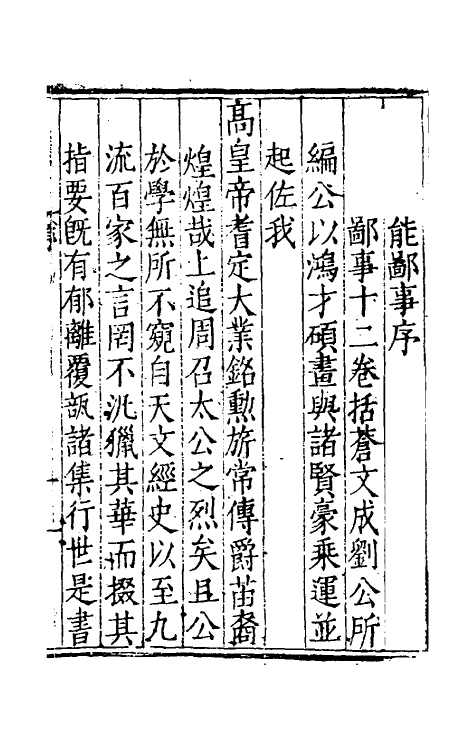 能鄙事序
鄙事十二卷括蒼文成劉公所
編公以鴻才碩畫與諸賢豪乘運並
起佐我
高皇帝耆定大業銘勲旂常傳爵苗裔
煌煌哉上追周召太公之烈矣且公
於學無所不窺自天文經史以至九
流百家之言罔不汎獵其華而掇其
指要旣有郁離覆瓿諸集行世是書